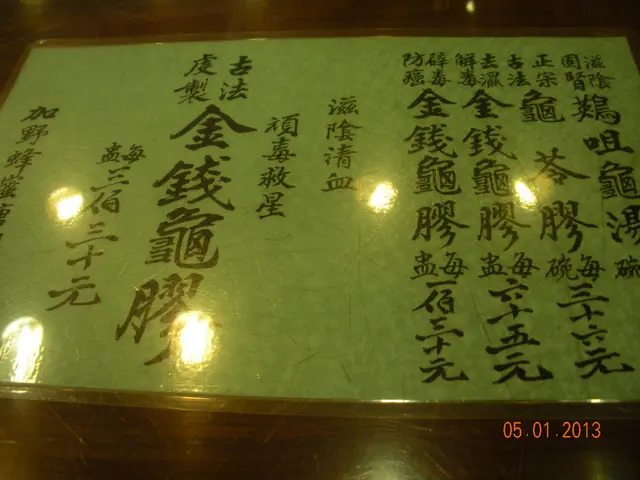 滋陰固腎
咀龜湯
碗
正宗古法
龜苓膠
每碗三十六元
去濕解毒
金錢龜膠
每盅六十五元
辟毒防癌
金錢龜膠
每盅一佰三十元
滋陰清血
頑毒救星
古法虔製
金錢龜膠
每盅三佰三十元
加野蜂
05.01.2013